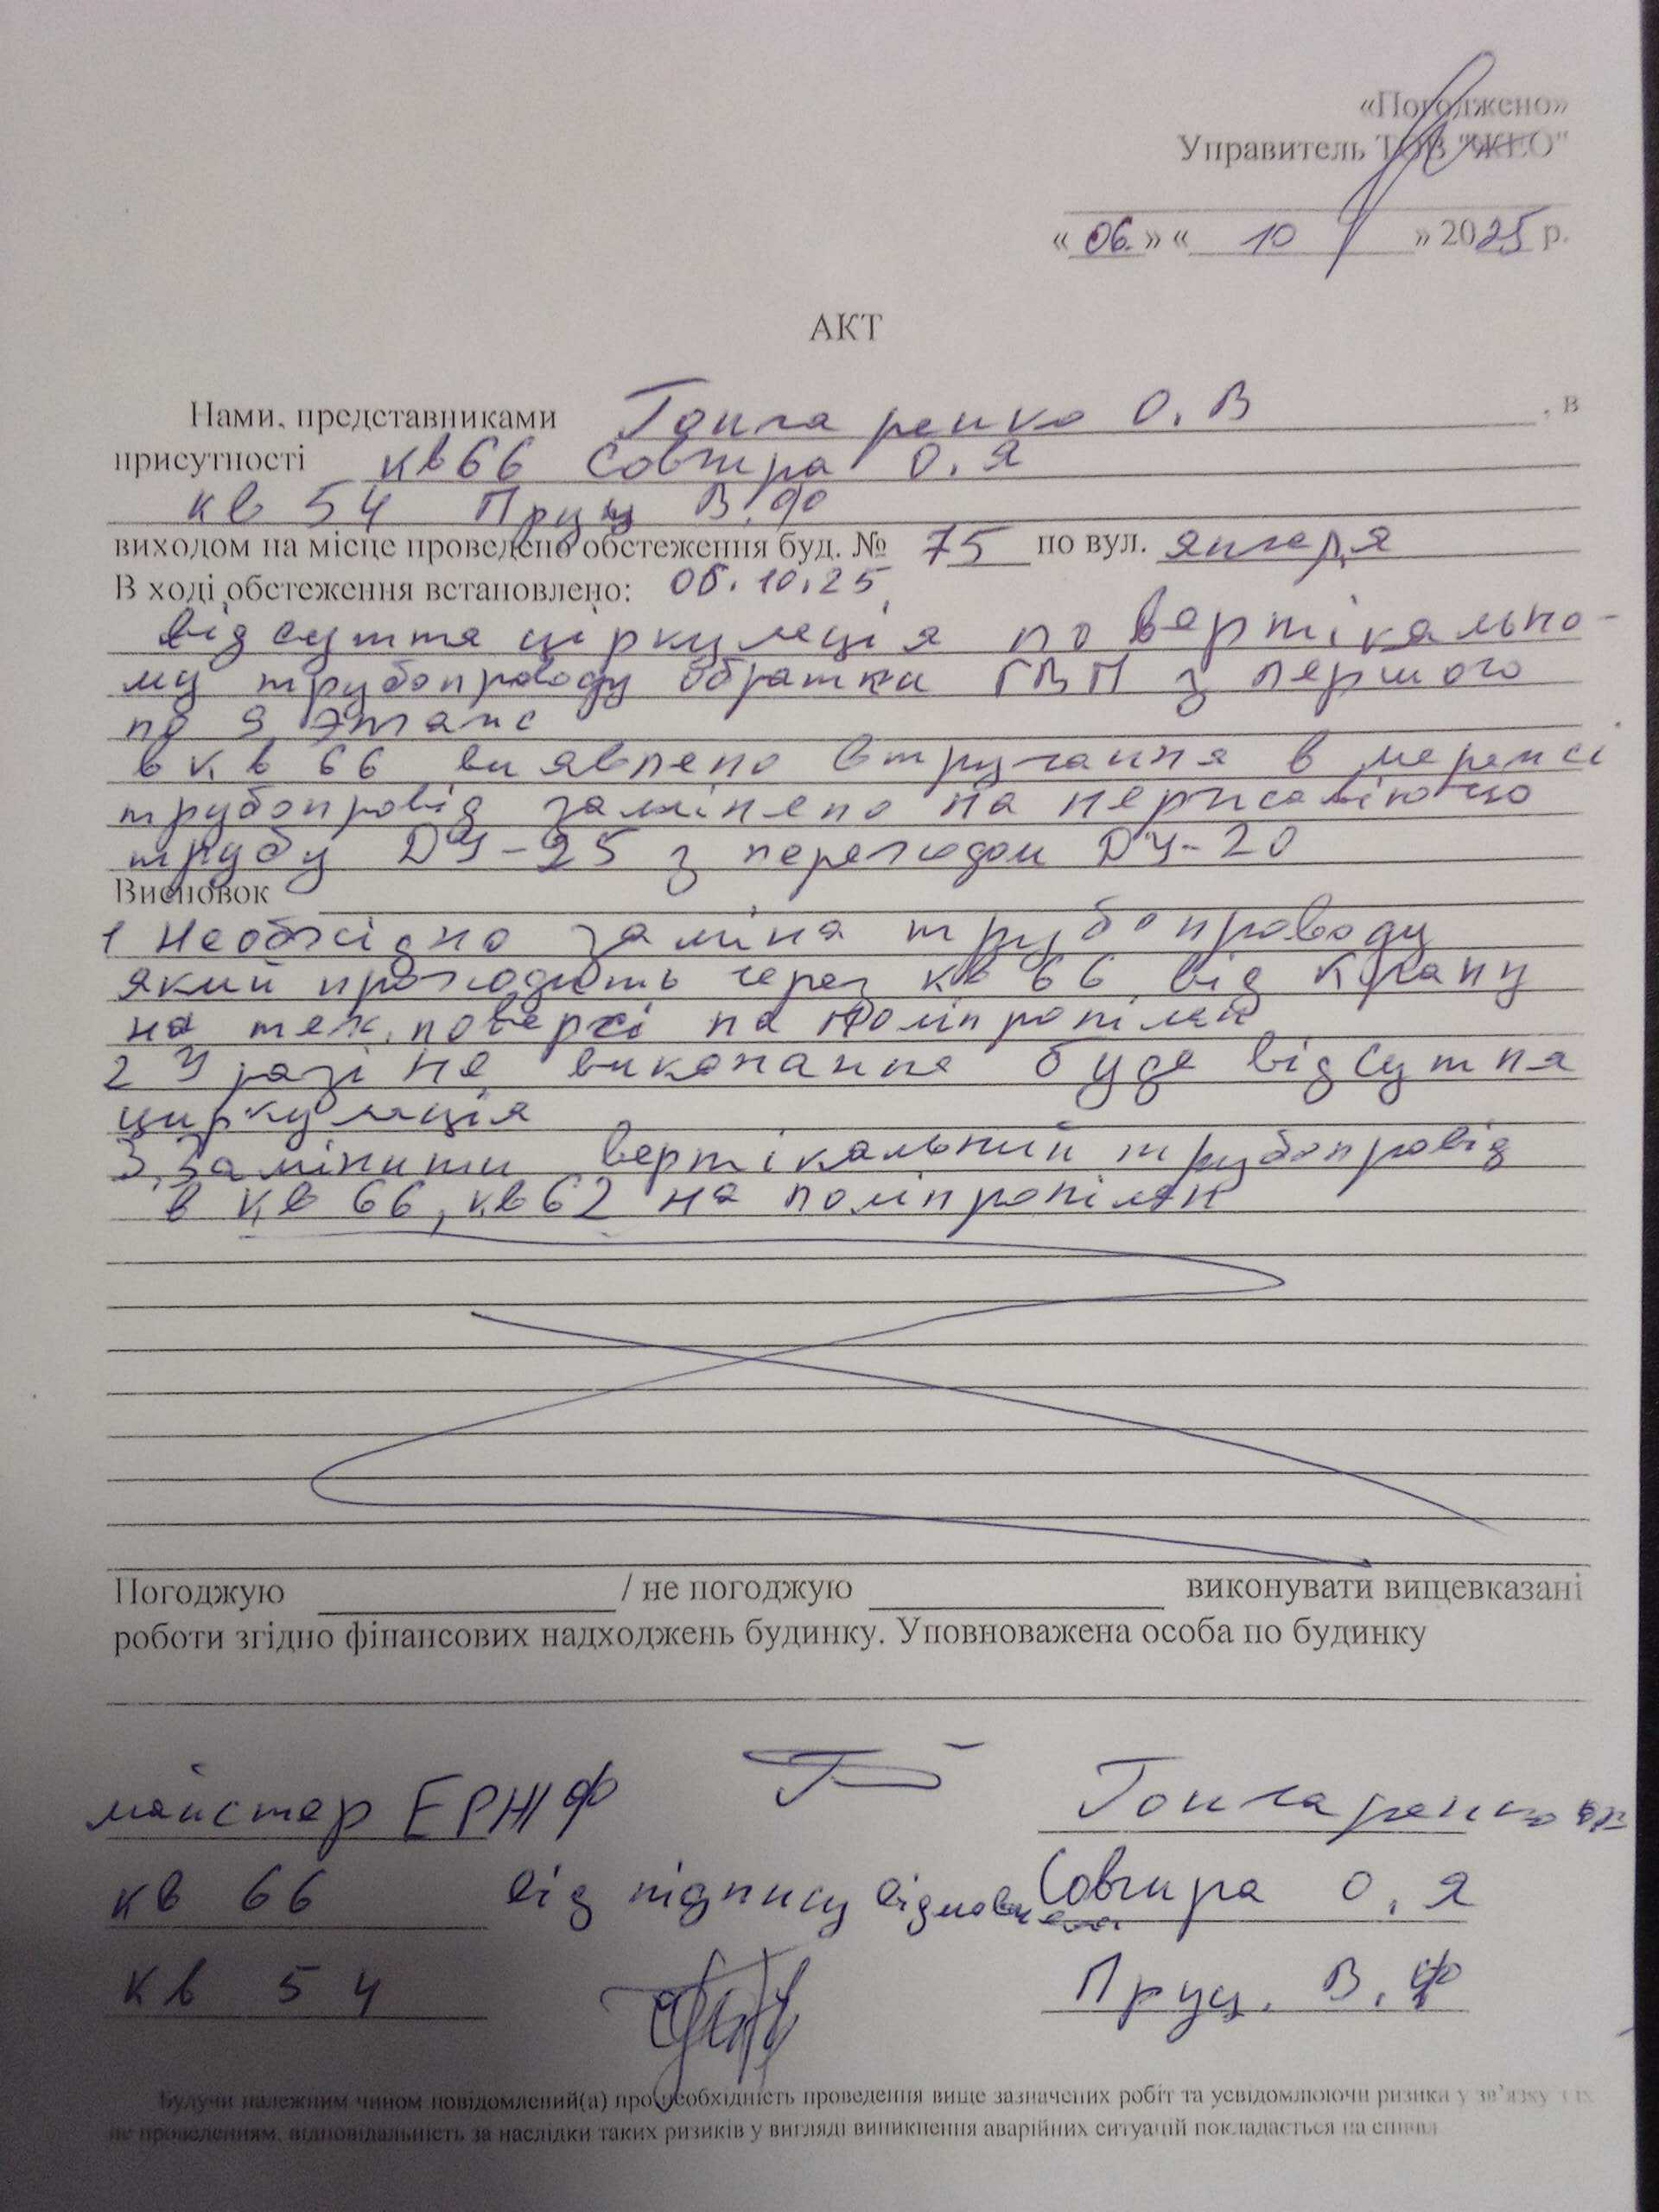 «Погоджено»
Управитель ТОВ "ЖЕО"
« 06 » « 10 » 2025 р.
АКТ
Нами, представниками Гончаренко О. В , в
присутності кв 66 Совгира О. Я
кв 54 Пруц В. Ф
виходом на місце проведено обстеження буд. № 75 по вул. января
В ході обстеження встановлено: 06.10.25
відсутня ціркуляція по вертікально-
му трубопроводу обратки ГВП з першого
по 9 этаж
в кв 66 виявлено втручання в мережі
трубопровід замінено на нержавіючю
трубу ДУ-25 з переходом ДУ-20
Висновок
1 Необхідно заміна трубопроводу
який проходить через кв 66 від крану
на тех. поверсі на поліпропілен
2 У разі не виконання буде відсутня
циркуляція
3. Замінити вертікальний трубопровід
в кв 66, кв 62 на поліпропілен
Погоджую / не погоджую виконувати вищевказані
роботи згідно фінансових надходжень будинку. Уповноважена особа по будинку
майстер ЕРЖФ Гончаренко
кв 66 від підпису відмовилась Совгира О. Я
кв 54 Пруц. В. Ф
Будучи належним чином повідомлений(а) про необхідність проведення вище зазначених робіт та усвідомлюючи ризики у зв'язку з їх
не проведенням, відповідальність за наслідки таких ризиків у вигляді виникнення аварійних ситуацій покладається на